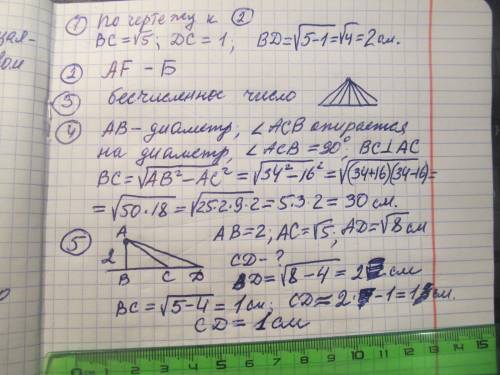 ① По чертежу к ②
BC=√5; DC=1; BD=√5-1=√4=2см.
② AF - Б
③ бесчисленное число
④ AB-диаметр, ∠ACB опирается
на диаметр, ∠ACB=90°, BC⊥AC
BC=√AB²-AC²=√34²-16²=√(34+16)(34-16)=
=√50·18=√25·2·9·2=5·3·2=30 см.
⑤ A AB=2; AC=√5, AD=√8 см
2 CD-?
B C D BD=√8-4=2 см
BC=√5-4=1см; CD=2-1=1см.
CD=1см
0 см 1 2 3 4 5 6 7 8 9 10 11 12 13 14 15